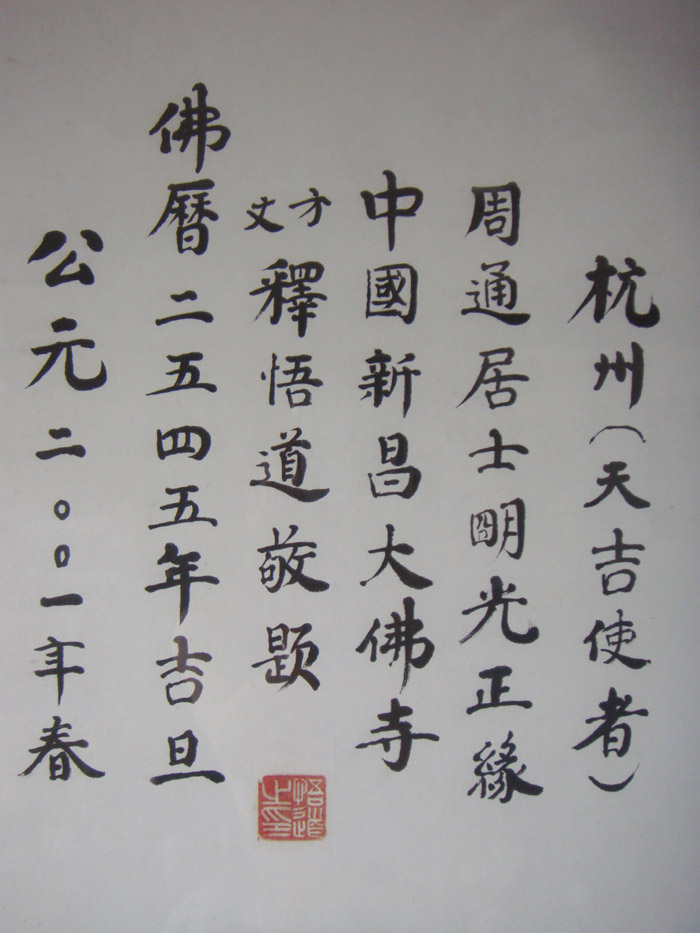 杭州（天吉使者）
周通居士朙光正緣
中國新昌大佛寺
方丈釋悟道敬题
佛曆二五四五年吉旦
公元二〇〇一年春
悟道之印